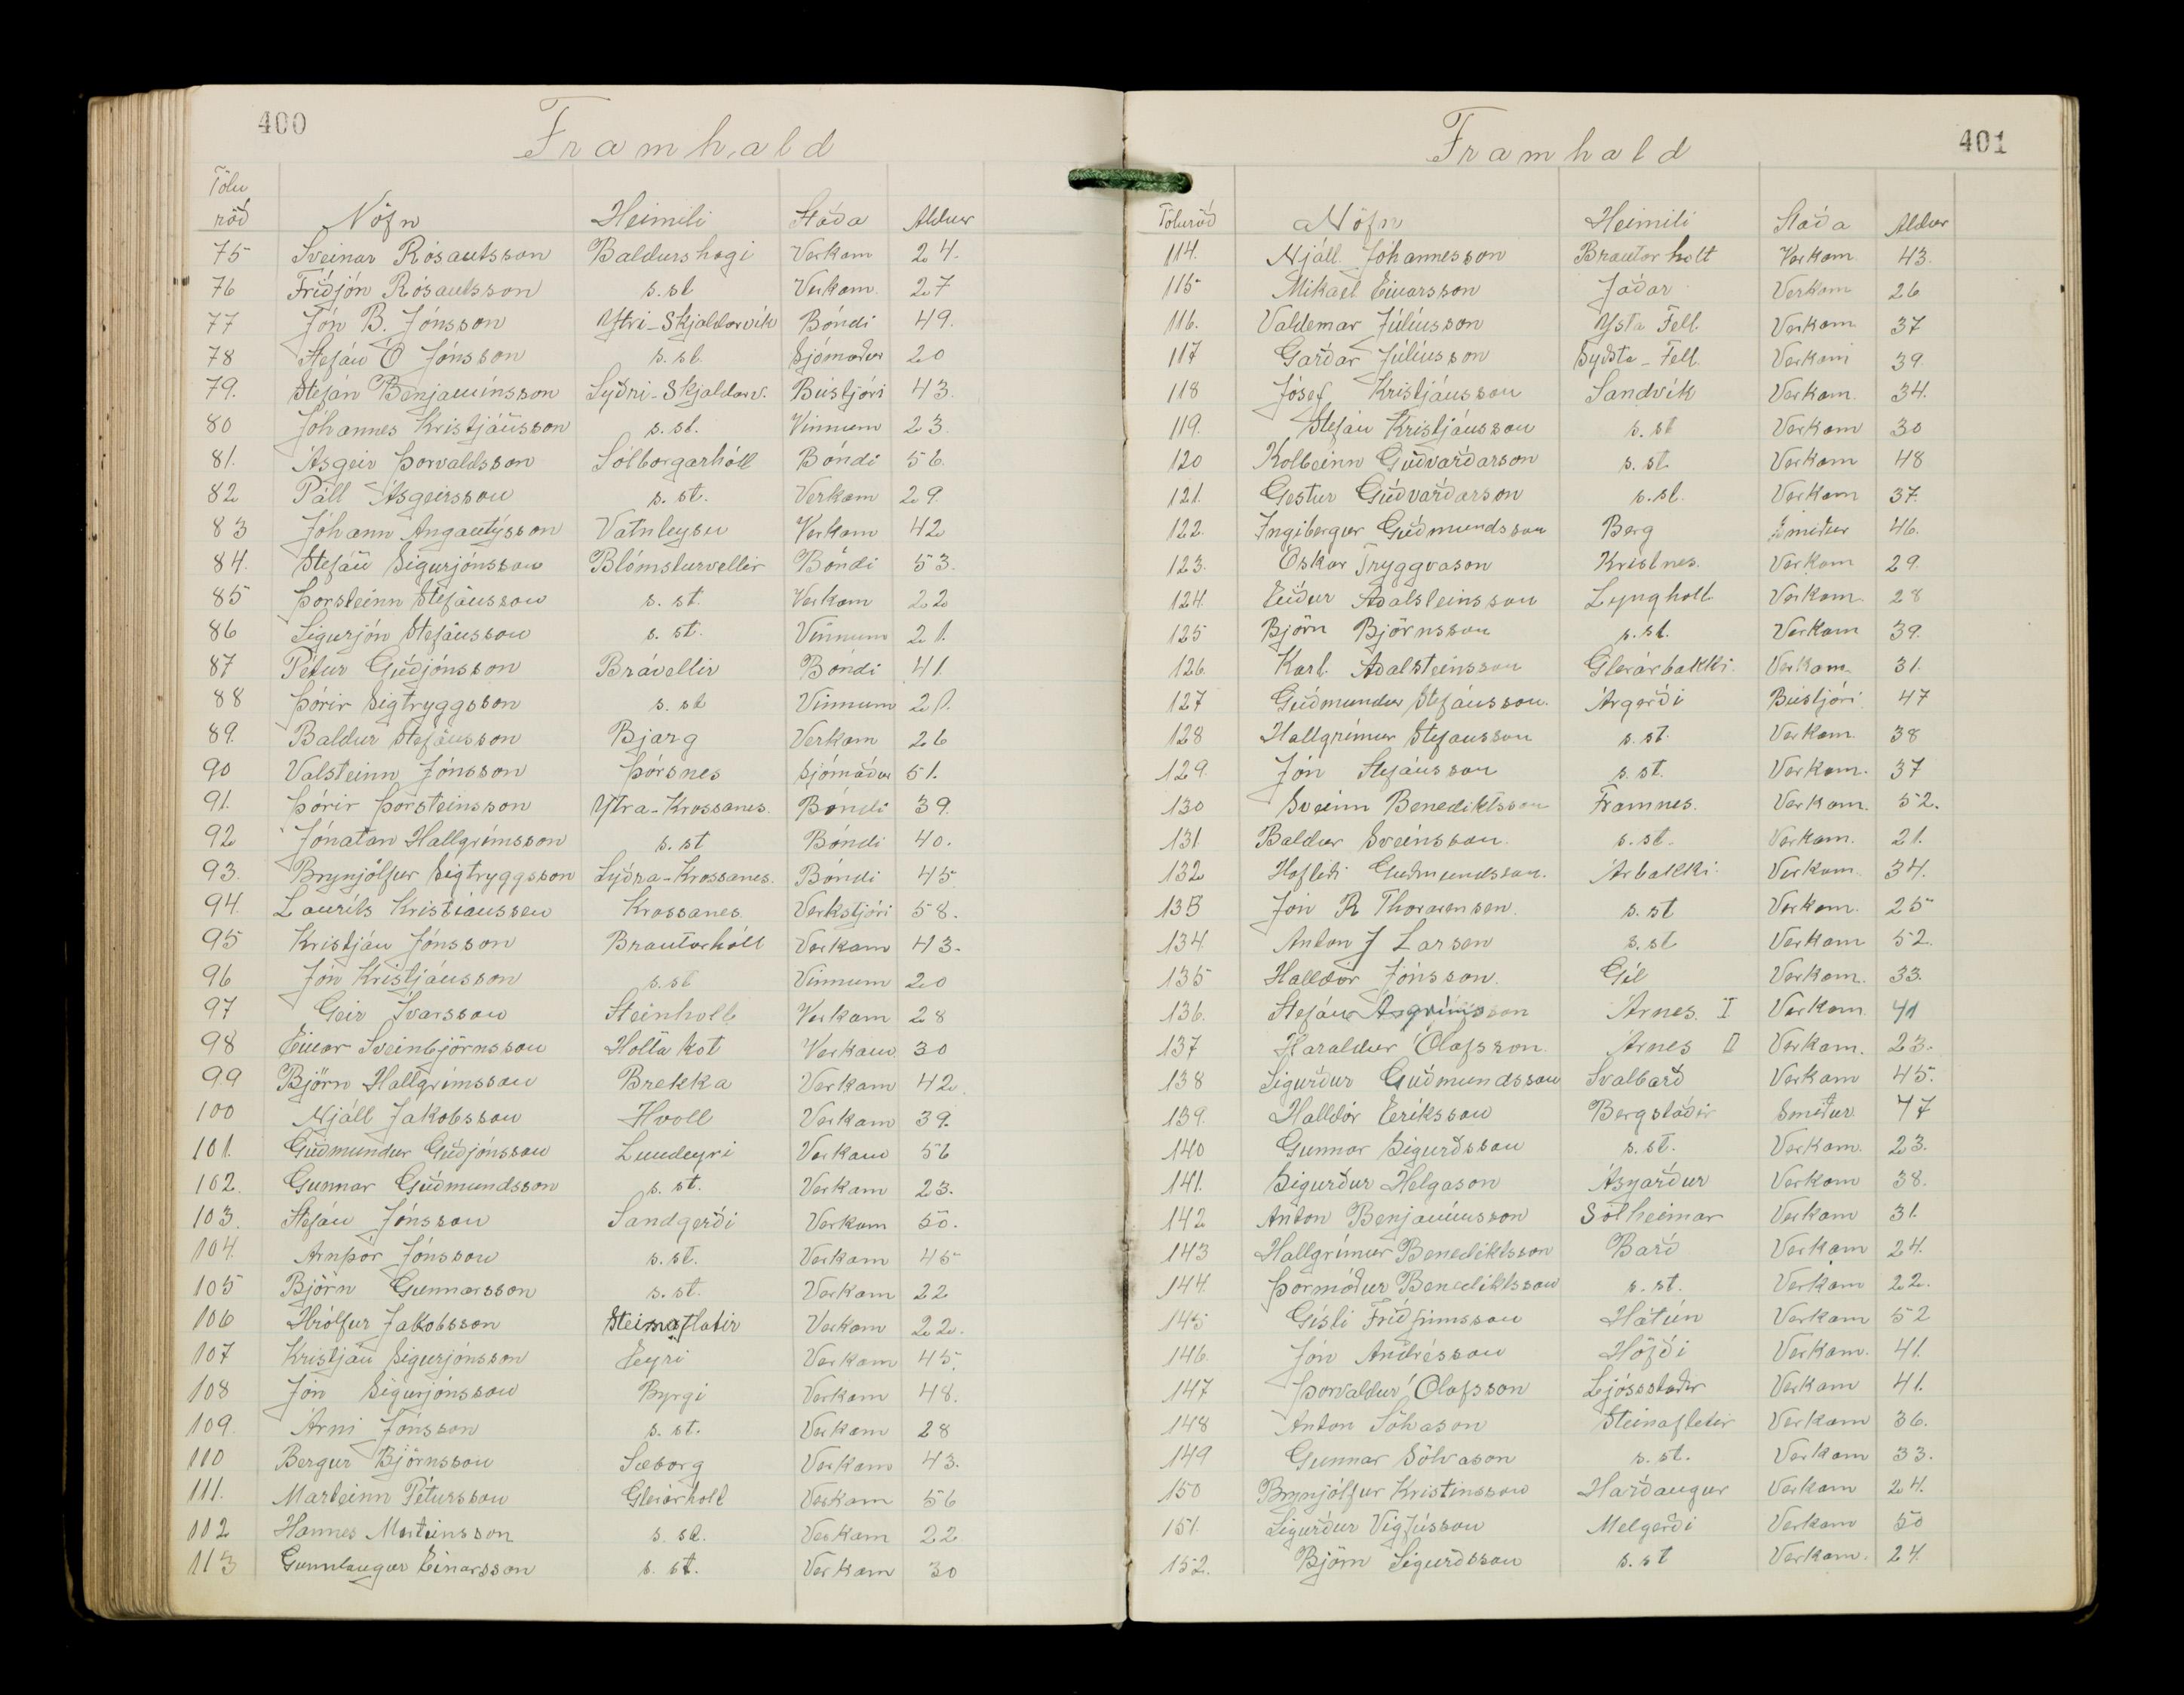 400
Framhald
Tölu
röð Nöfn Heimili Staða Aldur
75 Sveinar Rósantsson Baldurshagi Verkam 24.
76 Friðjón Rósantsson s.st Verkam. 27
77 Jón B. Jónsson Ytri-Skjaldarvík Bóndi 49.
78 Stefán Ó Jónsson s.st. Sjómaður 20
79. Stefán Benjamínsson Syðri-Skjaldarv. Bústjóri 43.
80 Jóhannes Kristjánsson s.st. Vinnum 23.
81. Ásgeir Þorvaldsson Sólborgarhóll Bóndi 56.
82 Páll Ásgeirsson s.st. Verkam 29.
83 Jóhann Angantýsson Vatnleysu Verkam 42
84. Stefán Sigurjónsson Blómsturvellir Bóndi 53.
85 Þorsteinn Stefánsson s.st. Verkam 22
86 Sigurjón Stefánsson s.st. Vinnum 21.
87 Pétur Guðjónsson Brávellir Bóndi 41.
88 Þórir Sigtryggsson s.st Vinnum 21.
89. Baldur Stefánsson Bjarg Verkam 26
90 Valsteinn Jónsson Þórsnes Sjómaður 51.
91. Þórir Þorsteinsson Ytra-Krossanes. Bóndi 39.
92 Jónatan Hallgrímsson s.st Bóndi 40.
93. Brynjólfur Sigtryggsson Syðra-Krossanes. Bóndi 45
94. Laurits Kristiansen Krossanes. Verkstjóri 58.
95 Kristján Jónsson Brautarhóll Verkam 43.
96 Jón Kristjánsson s.st Vinnum 20
97 Geir Ívarsson Steinholt Verkam 28
98 Einar Sveinbjörnsson Hólta kot Verkam 30
99 Björn Hallgrímsson Brekka Verkam 42.
100 Njáll Jakobsson Hvoll Verkam 39.
101. Guðmundur Guðjónsson Lundeyri Verkam 56
102. Gunnar Guðmundsson s.st. Verkam 23.
103. Stefán Jónsson Sandgerði Verkam 50.
104. Arnþór Jónsson s.st. Verkam 45
105 Björn Gunnarsson s.st. Verkam 22
106 Hrólfur Jakobsson Steinaflatir Verkam 22.
107 Kristján Sigurjónsson Eyri Verkam 45.
108 Jón Sigurjónsson Byrgi Verkam 48.
109. Árni Jónsson s.st. Verkam 28
110 Bergur Björnsson Sæborg Verkam 43.
111. Marteinn Pétursson Glerárholt Verkam 56
112 Hannes Marteinsson s.st. Verkam 22
113 Gunnlaugur Einarsson s.st. Verkam 30
401
Framhald
Töluröð Nöfn Heimili Staða Aldur
114. Njáll Jóhannesson Brautarholt Verkam 43.
115 Mikael Einarsson Jaðar Verkam 26
116. Valdemar Júlíusson Ysta Fell. Verkam 37
117 Garðar Júlíusson Syðsta-Fell. Verkam 39.
118 Jósef Kristjánsson Sandvík Verkam. 34.
119. Stefán Kristjánsson s.st Verkam 30
120 Kolbeinn Guðvarðarson s.st. Verkam 48
121. Gestur Guðvarðarson s.st. Verkam 37.
122. Ingibergur Guðmundsson Berg Smiður 46.
123. Óskar Tryggvason Kristnes. Verkam 29.
124. Eiður Aðalsteinsson Lyngholt Verkam. 28
125 Björn Björnsson s.st. Verkam 39.
126. Karl. Aðalsteinsson Glerárbakki. Verkam. 31.
127 Guðmundur Stefánsson. Árgerði Bústjóri 47
128 Hallgrímur Stefánsson s.st. Verkam. 38
129. Jón Stefánsson s.st. Verkam. 37
130 Sveinn Benediktsson Framnes. Verkam. 52.
131 Baldur Sveinsson. s.st. Verkam. 21.
132 Hafliði Guðmundsson. Árbakki Verkam. 34.
133 Jón R Thorarensen. s.st Verkam. 25
134. Anton J Larsen s.st Verkam 52.
135 Halldór Jónsson. Gil Verkam. 33.
136. Stefán Ásgrímsson Árnes. I Verkam. 41
137 Haraldur Ólafsson. Árnes II Verkam. 23.
138 Sigurður Guðmundsson Svalbarð Verkam 45.
139. Halldór Eiríksson Bergstaðir Smiður 47
140 Gunnar Sigurðsson s.st. Verkam. 23.
141. Sigurður Helgason Ásgarður Verkam 38.
142 Anton Benjamínsson Sólheimar Verkam 31.
143 Hallgrímur Benediktsson Barð Verkam 24.
144. Þormóður Benediktsson s.st. Verkam 22.
145 Gísli Friðfinnsson Hátún Verkam 52
146. Jón Andrésson Höfði Verkam. 41.
147 Þorvaldur Ólafsson Ljósstaðir Verkam 41.
148 Anton Sölvason Steinafletir Verkam 36.
149 Gunnar Sölvason s.st. Verkam 33.
150 Brynjólfur Kristinsson Harðangur Verkam 24.
151. Sigurður Vigfússon Melgerði Verkam 50
152. Björn Sigurðsson s.st Verkam. 24.